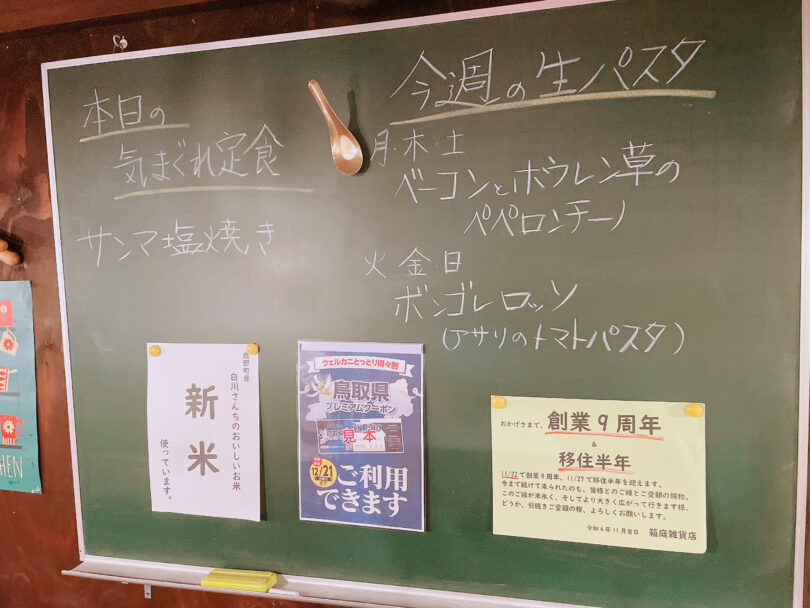 本日の
気まぐれ定食
サンマ塩焼き
今週の生パスタ
月・木・土
ベーコンとホウレン草の
ペペロンチーノ
火・金・日
ボンゴレロッソ
(アサリのトマトパスタ)
鹿野町産
白川さんちのおいしいお米
新米
使っています。
ウェルカニとっとり得々割
鳥取県
プレミアムクーポン
見本
12/21
ご利用
できます
おかげさまで、創業9周年
&
移住半年
12/22で創業9周年、11/27で移住半年を迎えます。
今まで続けて来られたのも、皆様とのご縁とご愛顧の賜物。
このご縁が末永く、そしてより大きく広がって行きます様、
どうか、引続きご愛顧の程、よろしくお願いします。
令和4年11月吉日 箱庭雑貨店
HEN